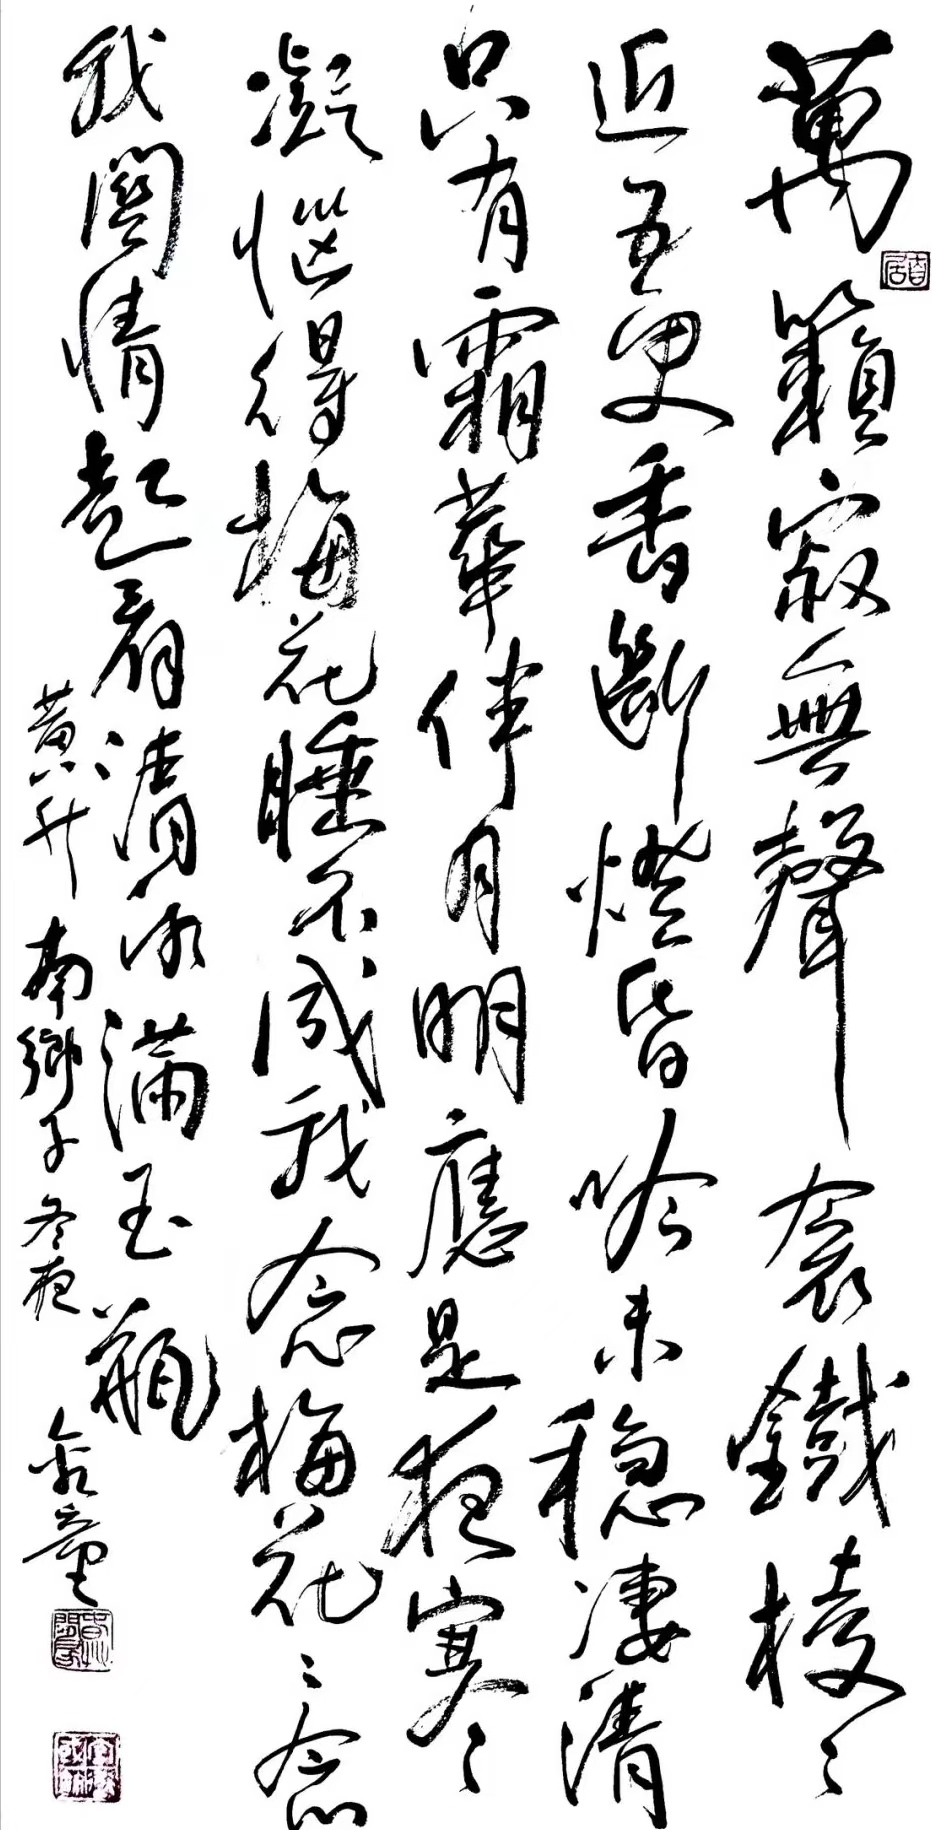 萬籟寂無聲衾鐵棱〻
近五更香斷燈昏吟未稳凄清
只有霜華伴月明應是夜寒
凝惱得梅花睡不成我念梅花〻念
我關情起看清冰滿玉瓶
黄升南鄉子冬夜